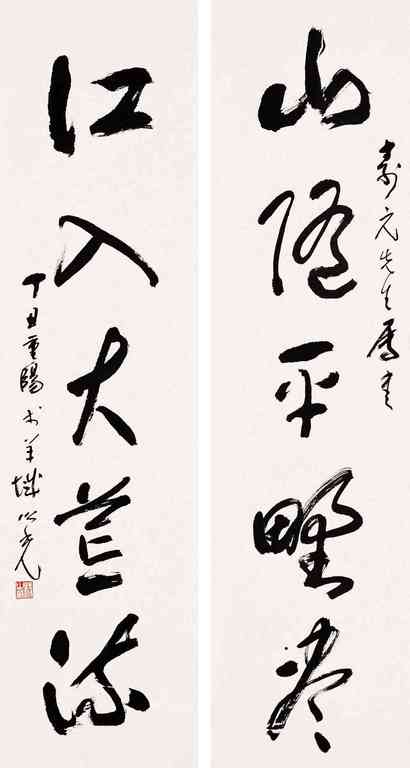 山随平野尽
寿元先生属书
江入大荒流
丁丑重陽於羊城